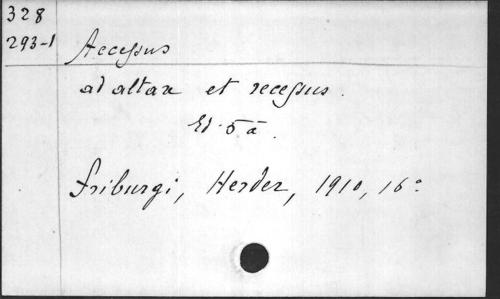 328
293-1
Accessus
ad altare et recessus.
Ed. 5ª.
Friburgi, Herder, 1910, 16º